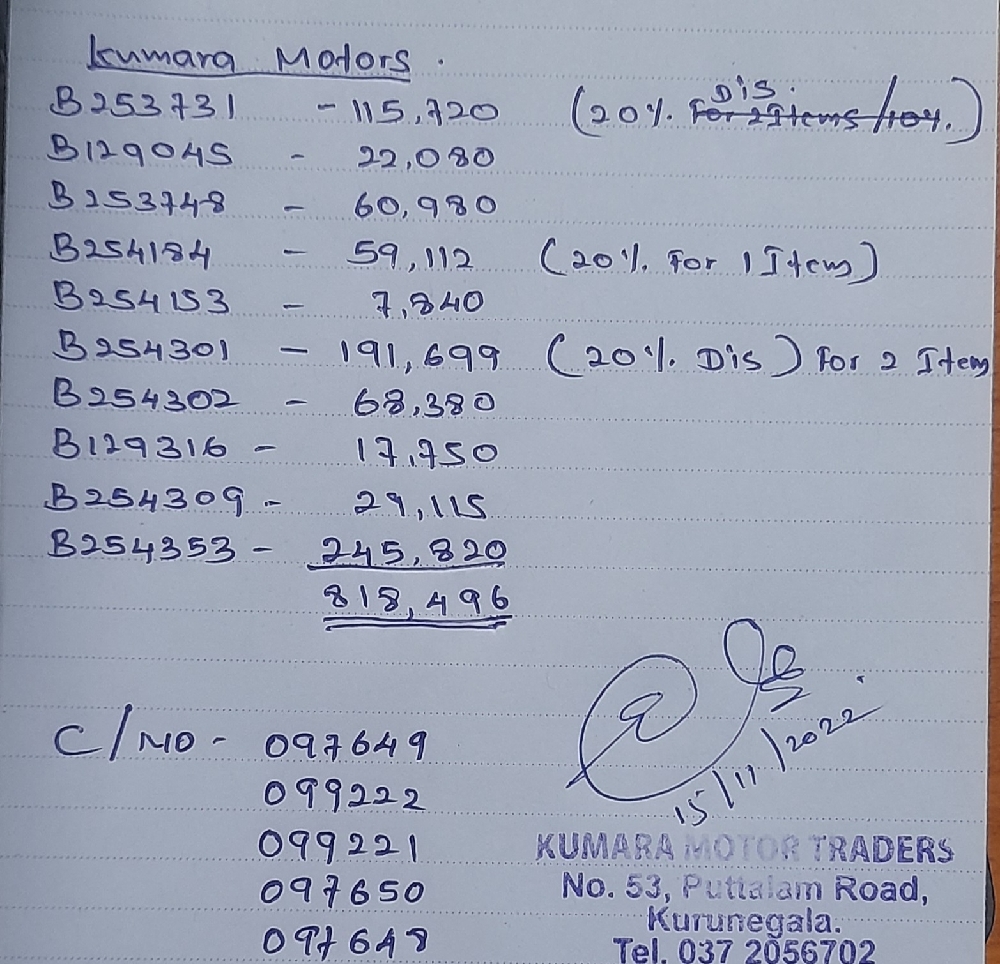 Kumara Motors.
B253731 - 115,720 (20% Dis. For 2 Items /10%.)
B129045 - 22,080
B253748 - 60,980
B254184 - 59,112 (20% For 1 Item)
B254153 - 7,840
B254301 - 191,699 (20% Dis) For 2 Item
B254302 - 68,380
B129316 - 17,750
B254309 - 29,115
B254353 - 245,820
818,496
15/11/2022
C/NO - 097649
099222
099221
097650
097648
KUMARA MOTOR TRADERS
No. 53, Puttalam Road,
Kurunegala.
Tel. 037 2056702